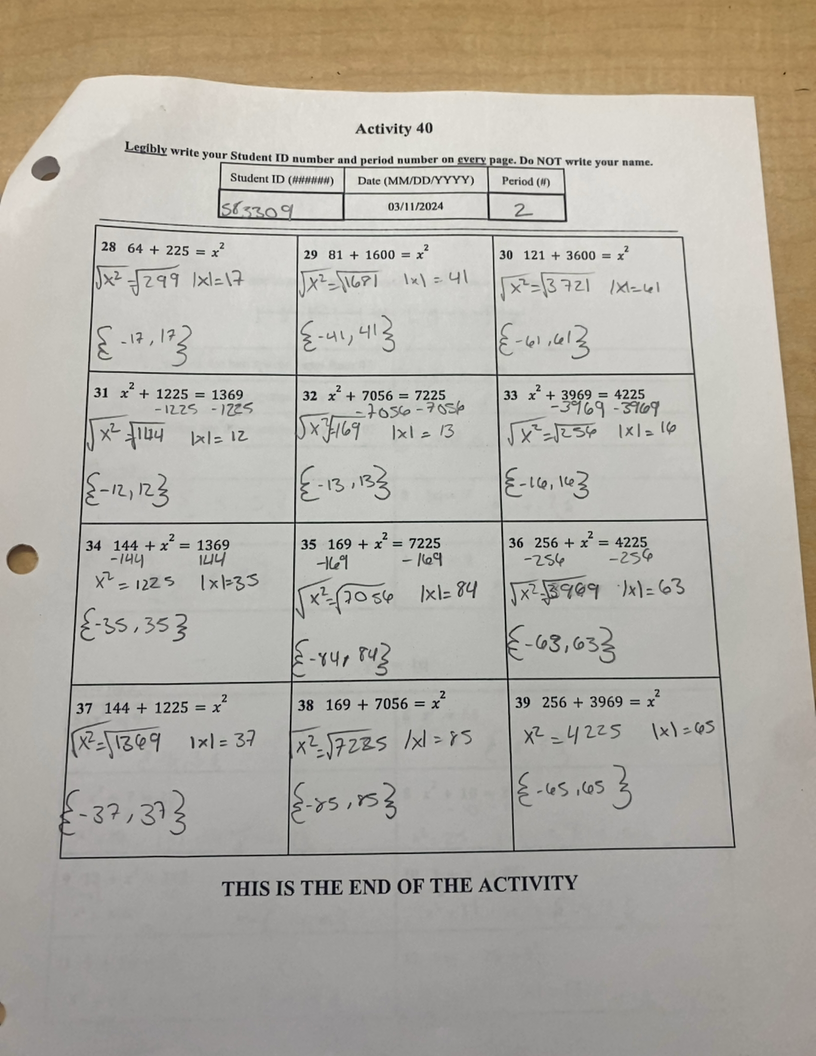 Activity 40
Legibly write your Student ID number and period number on every page. Do NOT write your name.
Student ID (######) Date (MM/DD/YYYY) Period (#)
583309 03/11/2024 2
28 64 + 225 = x²
√x² = √299 |x| = 17
{-17, 17}
29 81 + 1600 = x²
√x² = √1681 |x| = 41
{-41, 41}
30 121 + 3600 = x²
√x² = √3721 |x| = 61
{-61, 61}
31 x² + 1225 = 1369
-1225 -1225
√x² = √144 |x| = 12
{-12, 12}
32 x² + 7056 = 7225
-7056 -7056
√x² = √169 |x| = 13
{-13, 13}
33 x² + 3969 = 4225
-3969 -3969
√x² = √256 |x| = 16
{-16, 16}
34 144 + x² = 1369
-144 144
x² = 1225 |x| = 35
{-35, 35}
35 169 + x² = 7225
-169 -169
√x² = √7056 |x| = 84
{-84, 84}
36 256 + x² = 4225
-256 -256
√x² = √3969 |x| = 63
{-63, 63}
37 144 + 1225 = x²
√x² = √1369 |x| = 37
{-37, 37}
38 169 + 7056 = x²
√x² = √7225 |x| = 85
{-85, 85}
39 256 + 3969 = x²
x² = 4225 |x| = 65
{-65, 65}
THIS IS THE END OF THE ACTIVITY